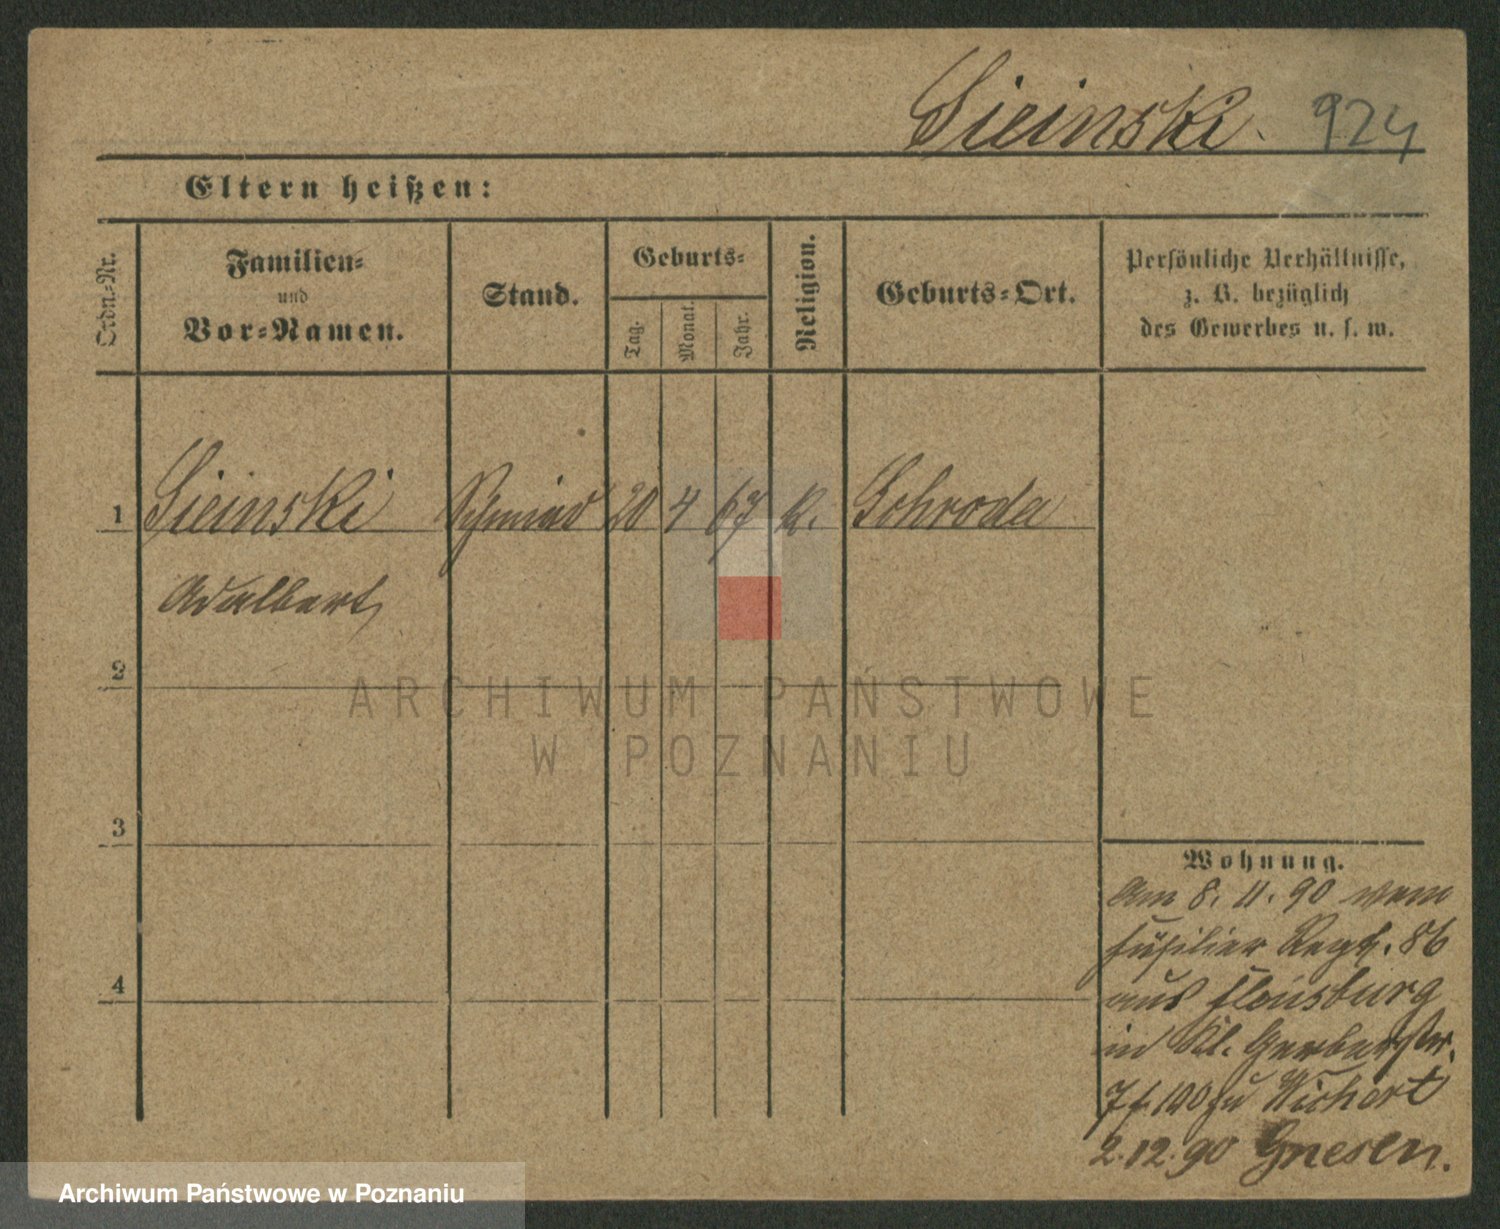 Sieinski. 924
Eltern heißen:
Ordn.-Nr.
Familien-
und
Vor-Namen.
Stand.
Geburts-
Tag.
Monat.
Jahr.
Religion.
Geburts-Ort.
Persönliche Verhältnisse,
z. B. bezüglich
des Gewerbes u. s. w.
1 Sieinski Schmied 20 4 67 K. Schroda
Adalbert
2
3
4
Wohnung.
Am 8. 11. 90 vom
Füsilier Regt. 86
aus Flensburg
in Kl. Gerberstr.
7 zu Wichert
2.12.90 Gnesen.
ARCHIWUM PAŃSTWOWE
W POZNANIU
Archiwum Państwowe w Poznaniu